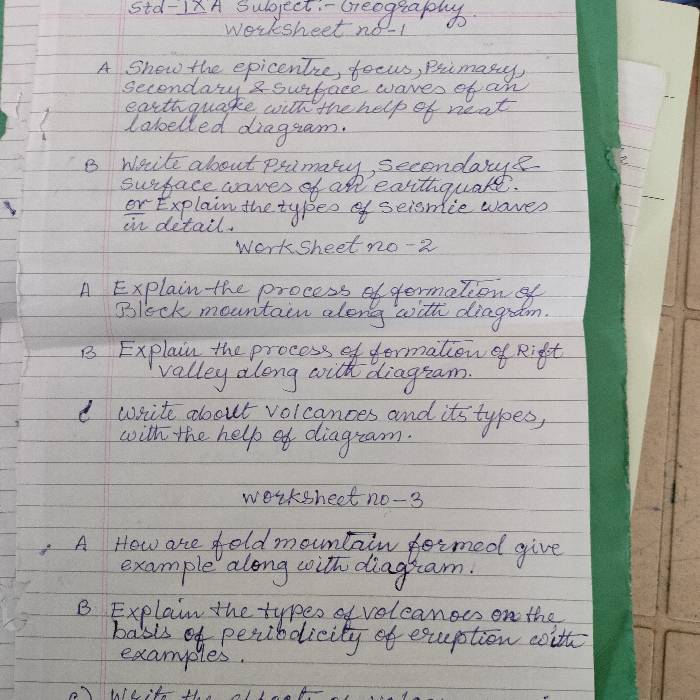 Std-IXA Subject:- Geography
Worksheet no-1
A Show the epicentre, focus, Primary,
Secondary & surface waves of an
earthquake with the help of neat
labelled diagram.
B Write about Primary, Secondary &
Surface waves of an earthquake.
or Explain the types of Seismic waves
in detail.
Work Sheet no-2
A Explain the process of formation of
Block mountain along with diagram.
B Explain the process of formation of Rift
Valley along with diagram.
C write about volcanoes and its types,
with the help of diagram.
Worksheet no-3
A How are fold mountain formed give
example along with diagram.
B Explain the types of volcanoes on the
basis of periodicity of eruption with
examples.
c) Write the effects of